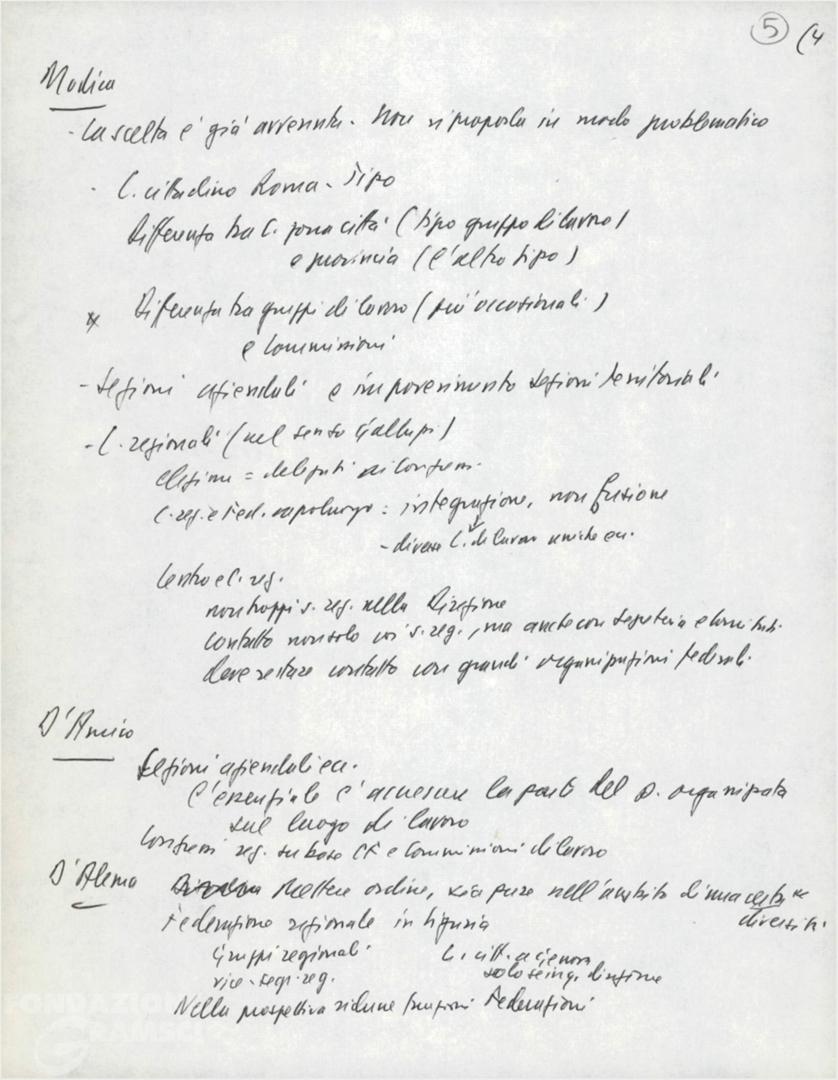 5 (4
Modica
- La scelta è già avvenuta. Non si proposta in modo problematico
- C. cittadino Roma - Tipo
Differenza tra C. zona città (tipo gruppo di lavoro)
e provincia (l'altro tipo)
x Differenza tra gruppi di lavoro (più occasionali)
e Commissioni
- Sezioni aziendali e impoverimento sezioni territoriali
- C. regionali (nel senso Galluzzi)
elezione = delegati ai Congressi.
C. reg. e Fed. capoluogo = integrazione, non fusione
- diverse C. di lavoro uniche ecc.
Centro e C. reg.
non troppi s. reg. nella Direzione
contatto non solo coi s. reg., ma anche con segreteria e comitati.
deve restare contatto con grandi organizzazioni federali.
D'Amico
Sezioni aziendali ecc.
L'essenziale è accrescere la parte del p. organizzata
sul luogo di lavoro
Congressi reg. su base CF e Commissioni di lavoro
D'Alema Mettere ordine, sia pure nell'ambito di una certa
diversità.
Federazione regionale in Liguria
Gruppi regionali C. citt. a Genova
vice-segr. reg. solo se ing. direzione
Nella prospettiva ridurre funzioni Federazioni
FONDAZIONE
GRAMSCI